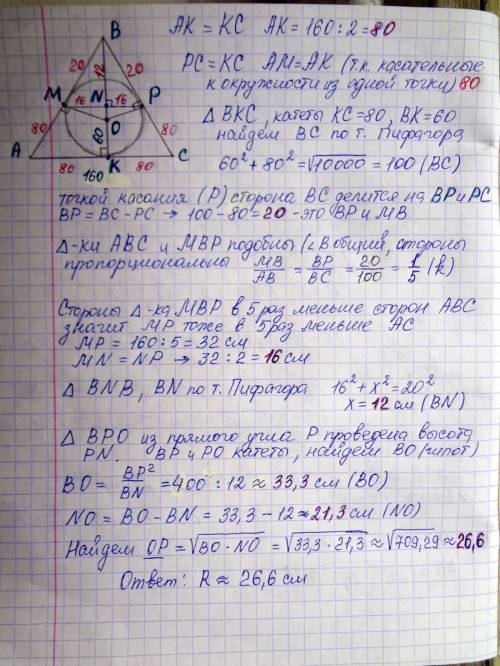 B
AK = KC   AK = 160 : 2 = 80
20 12 20
PC = KC   AM = AK (т.к. касательные
к окружности из одной точки) 80
M N P
16 16
O
Δ BKC, катеты KC = 80, BK = 60
найдем BC по т. Пифагора
80 60 80
60² + 80² = √10000 = 100 (BC)
A K C
80 80
160
точкой касания (P) сторона BC делится на BP и PC
BP = BC - PC → 100 - 80 = 20 - это BP и MB
Δ-ки ABC и MBP подобны (∠B общий, стороны
пропорциональны MB/AB = BP/BC = 20/100 = 1/5 (k)
Стороны Δ-ка MBP в 5 раз меньше сторон ABC
значит MP тоже в 5 раз меньше AC
MP = 160 : 5 = 32 см
MN = NP → 32 : 2 = 16 см
Δ BNB, BN по т. Пифагора   16² + x² = 20²
x = 12 см (BN)
Δ BPO из прямого угла P проведена высота
PN. BP и PO катеты, найдем BO (гипот)
BO = BP²/BN = 400 : 12 ≈ 33,3 см (BO)
NO = BO - BN = 33,3 - 12 ≈ 21,3 см (NO)
Найдем OP = √BO · NO = √33,3 · 21,3 ≈ √709,29 ≈ 26,6
Ответ: R ≈ 26,6 см